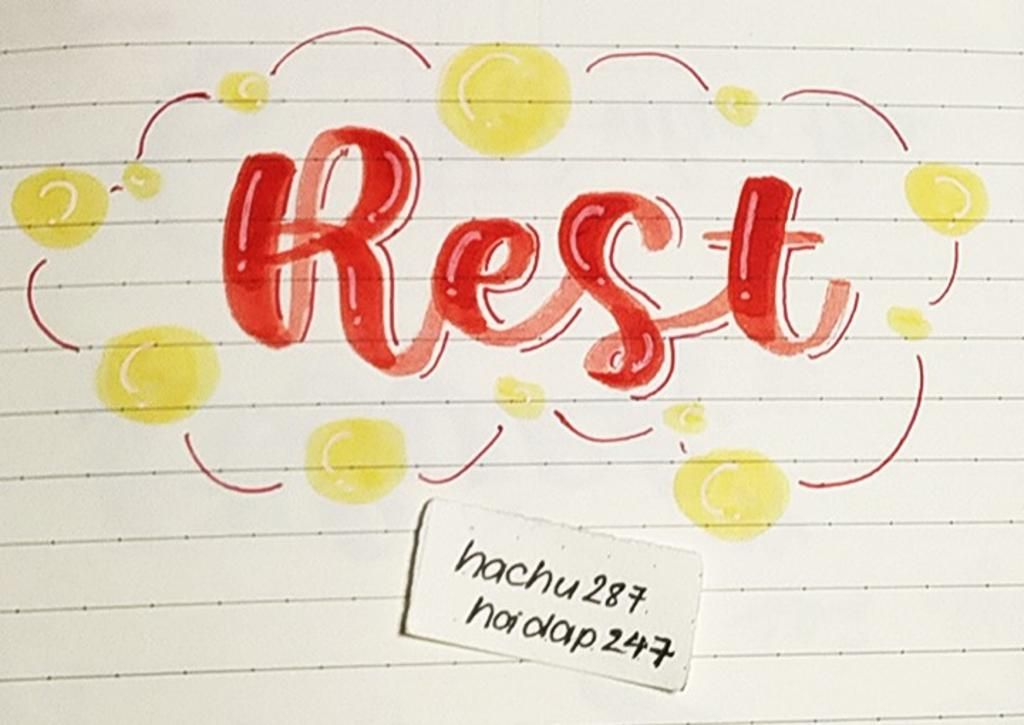 Rest
hachu287
hoidap247